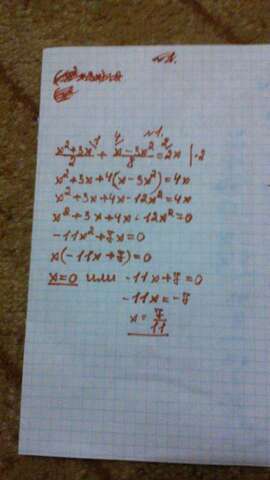 №1.
x²+3x/2 + x-3x²/y = 2x |·2
x²+3x+4(x-3x²)=4x
x²+3x+4x-12x²=4x
x²+3x+4x-12x²=0
-11x²+7x=0
x(-11x+7)=0
x=0 или -11x+7=0
-11x=-7
x=7/11